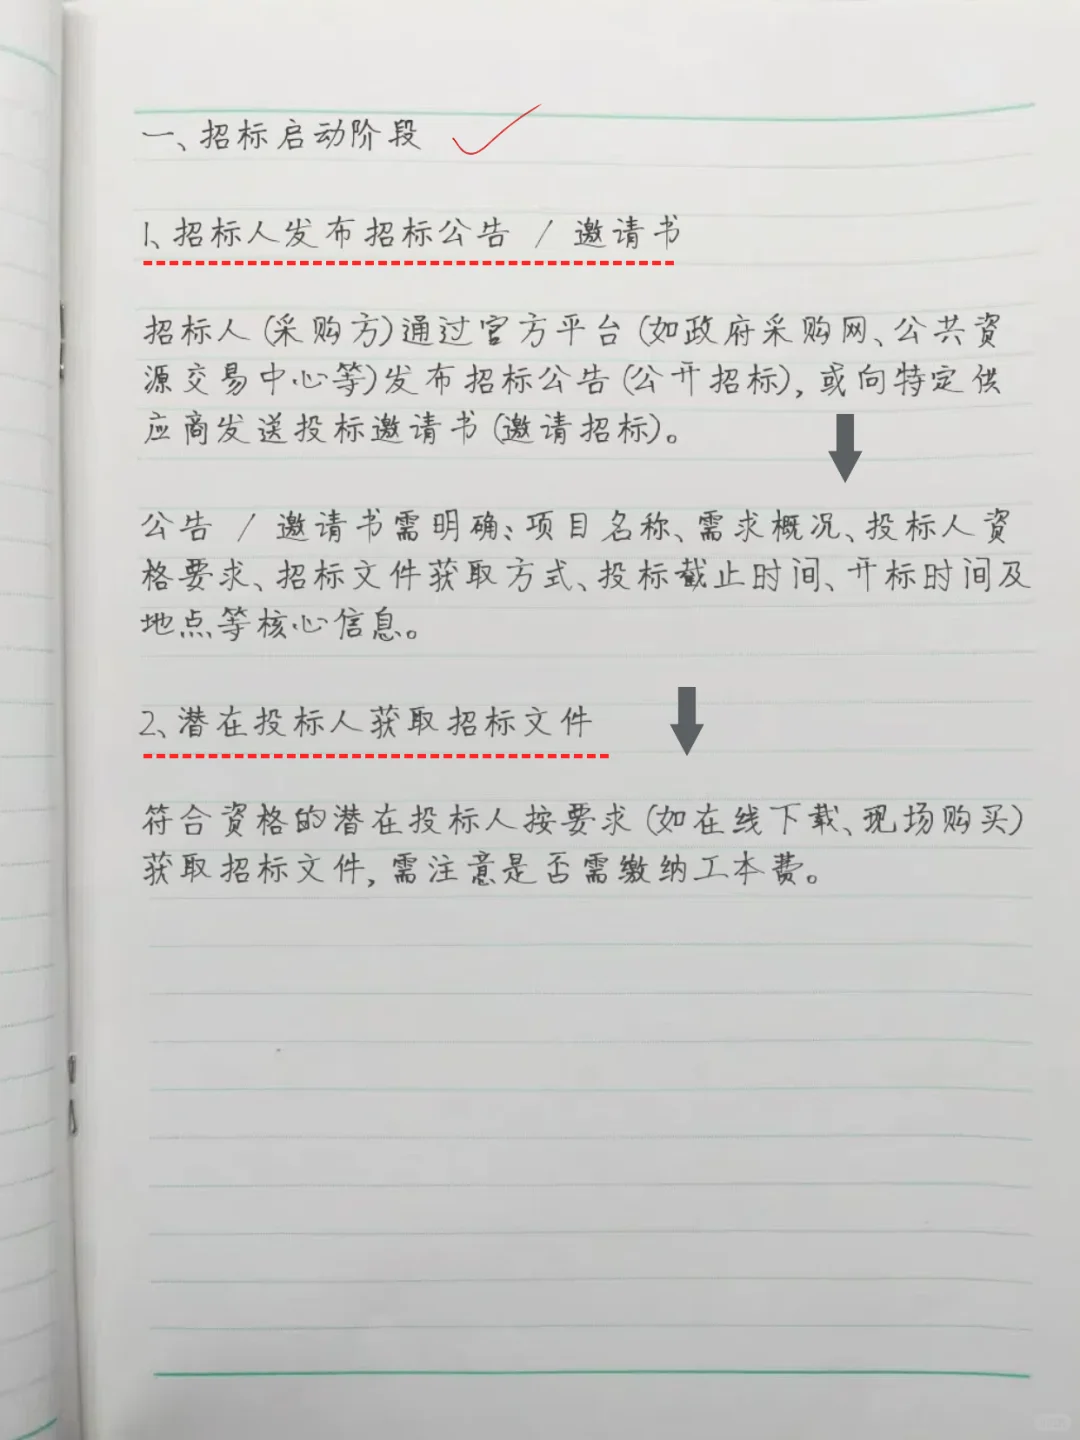 一、招标启动阶段
1、招标人发布招标公告 / 邀请书
招标人(采购方)通过官方平台(如政府采购网、公共資
源交易中心等)发布招标公告(公开招标),或向特定供
应商发送投标邀请书(邀请招标)。
公告 / 邀请书需明确:项目名称、需求概况、投标人資
格要求、招标文件获取方式、投标截止时间、开标时间及
地点等核心信息。
2、潜在投标人获取招标文件
符合資格的潜在投标人按要求(如在线下载、现场购买)
获取招标文件,需注意是否需缴纳工本费。